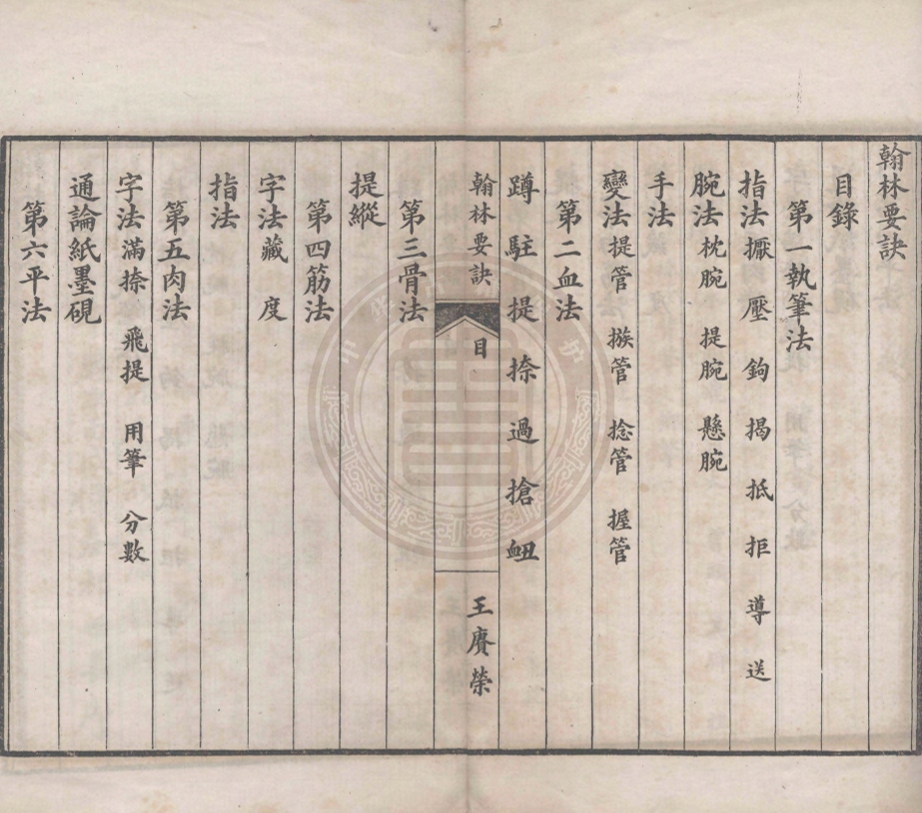 翰林要訣
目錄
第一執筆法
指法擫 壓 鉤 揭 抵 拒 導 送
腕法枕腕 提腕 懸腕
手法
變法提管 撥管 捻管 握管
第二血法
蹲 駐 提 捺 過 搶 衄
翰林要訣 目 王賡榮
第三骨法
提縱
第四筋法
字法藏 度
指法
第五肉法
字法滿捺 飛提 用筆 分數
通論紙墨硯
第六平法